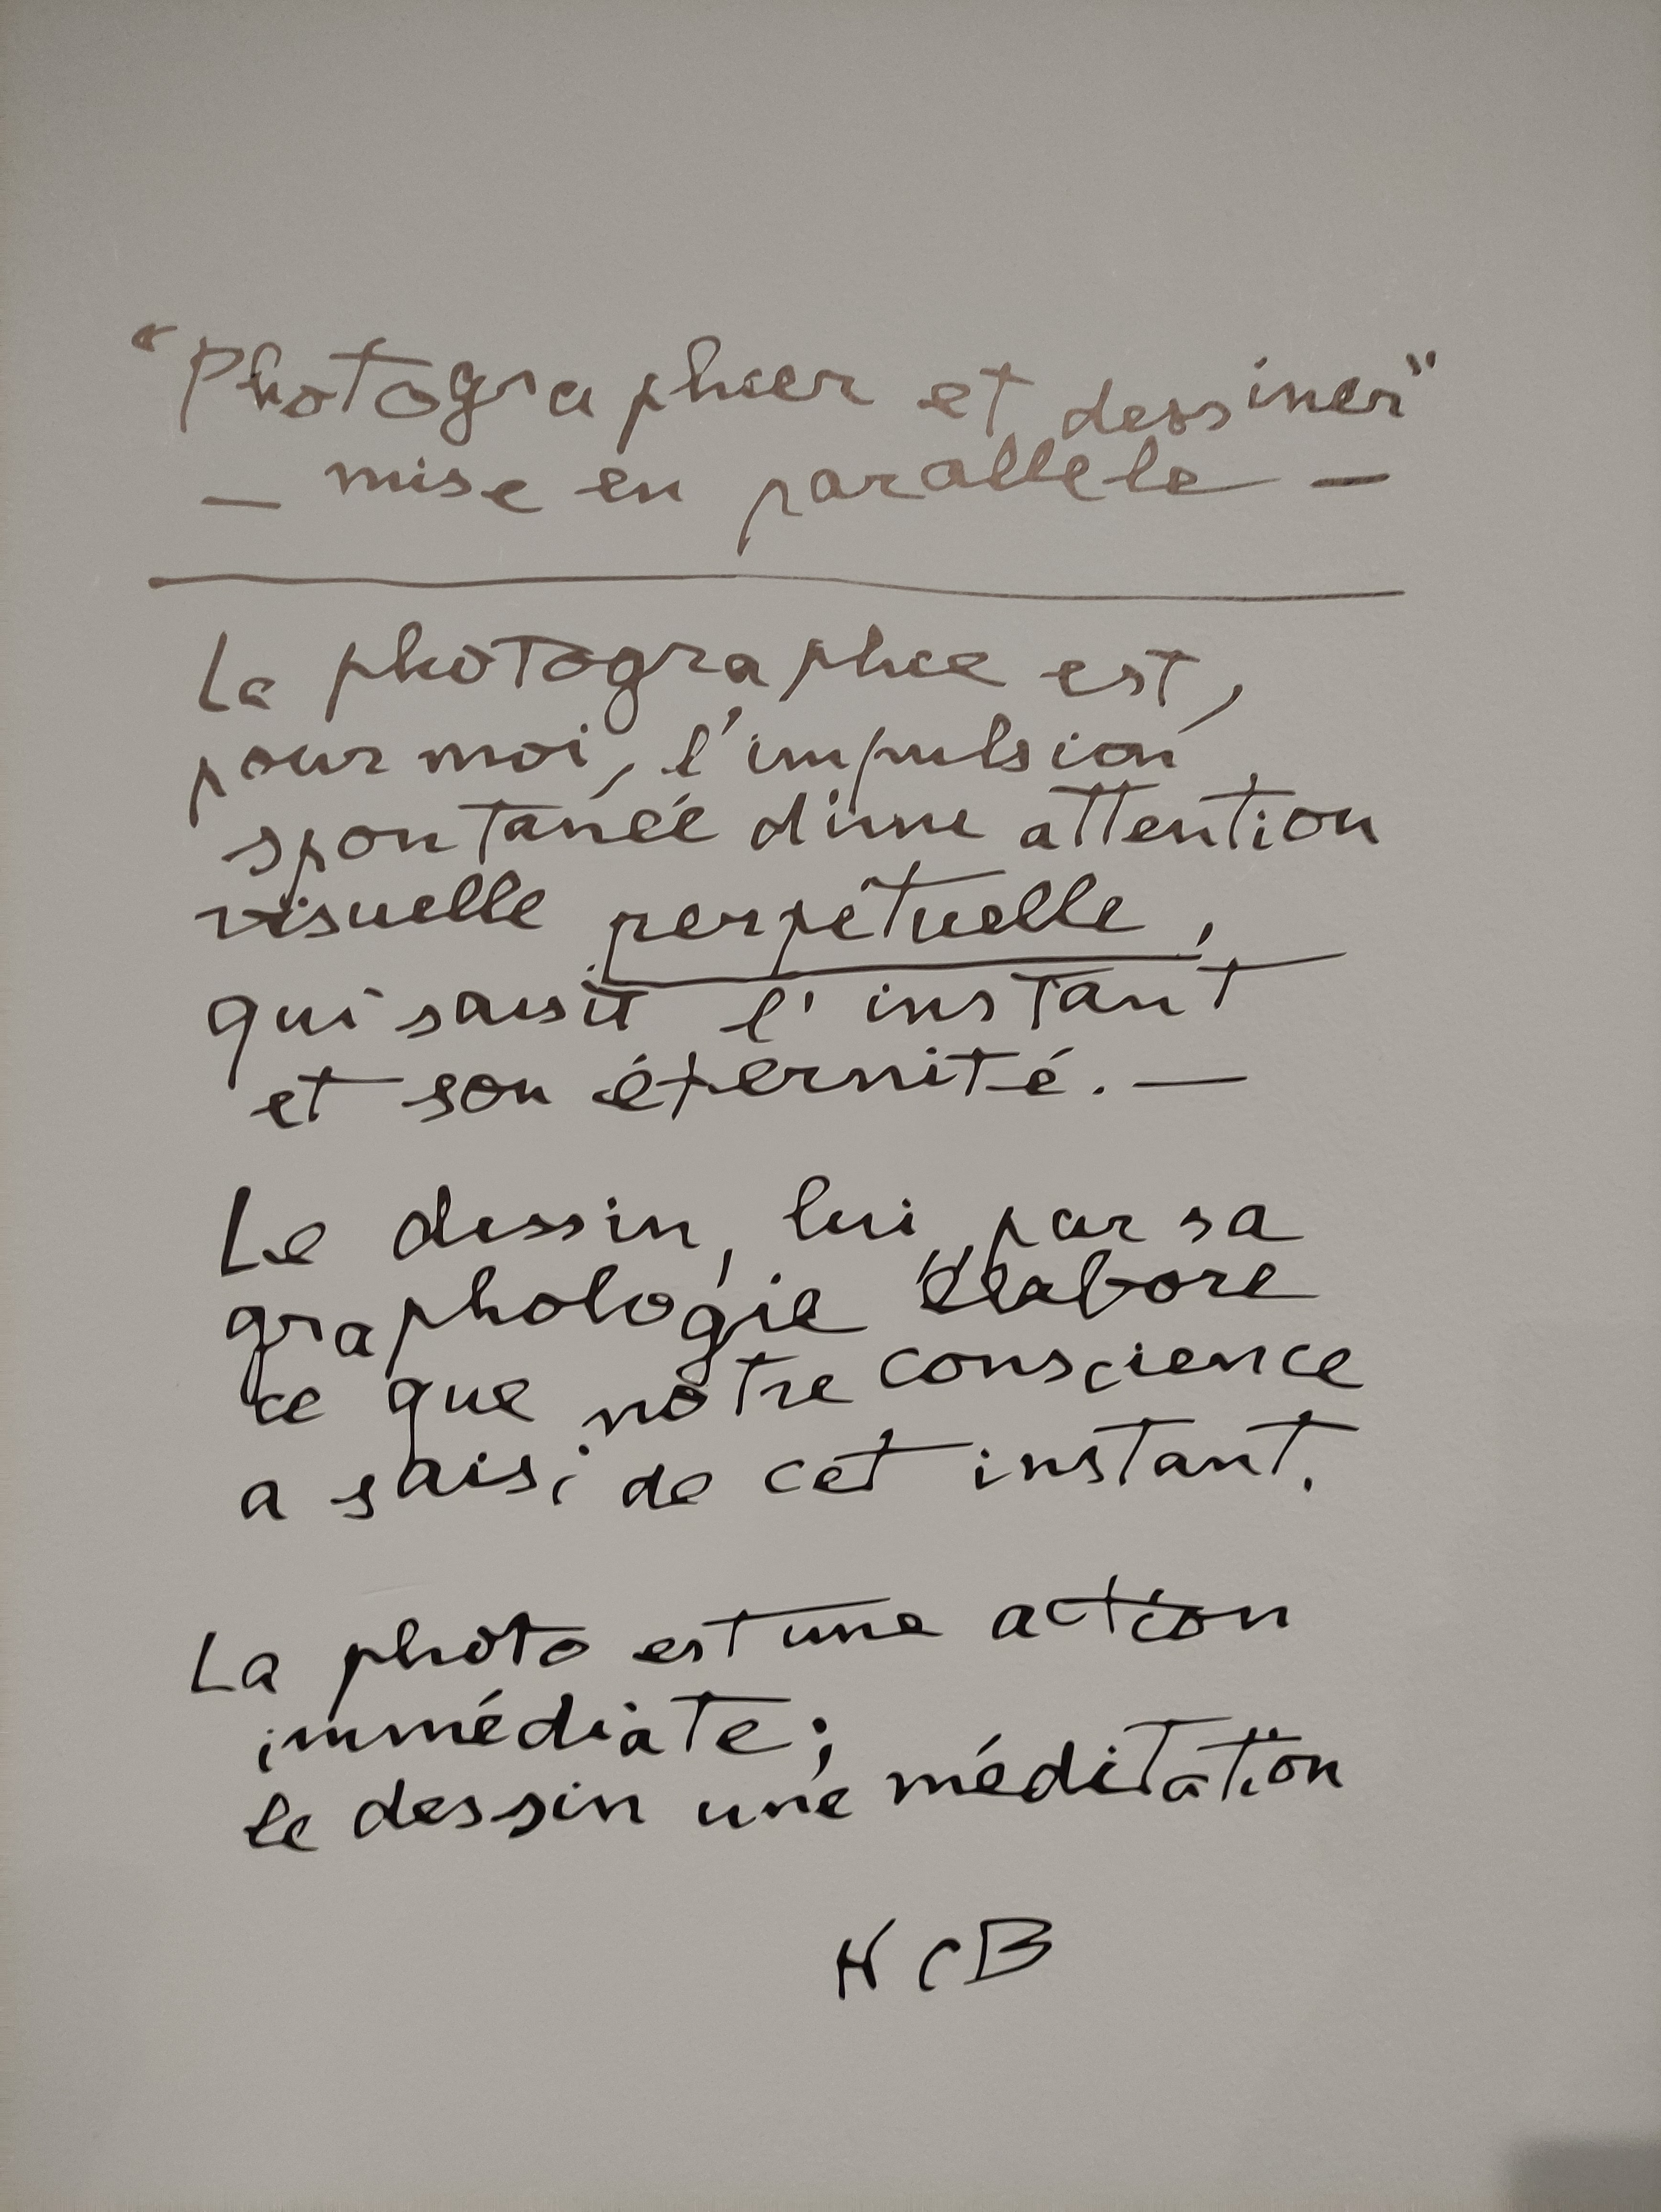 "Photographier et dessiner"
— mise en parallèle —
La photographie est,
pour moi, l'impulsion
spontanée d'une attention
visuelle perpétuelle,
qui saisit l'instant
et son éternité. —
Le dessin, lui, par sa
graphologie élabore
ce que notre conscience
a saisi de cet instant.
La photo est une action
immédiate ;
le dessin une méditation
HCB